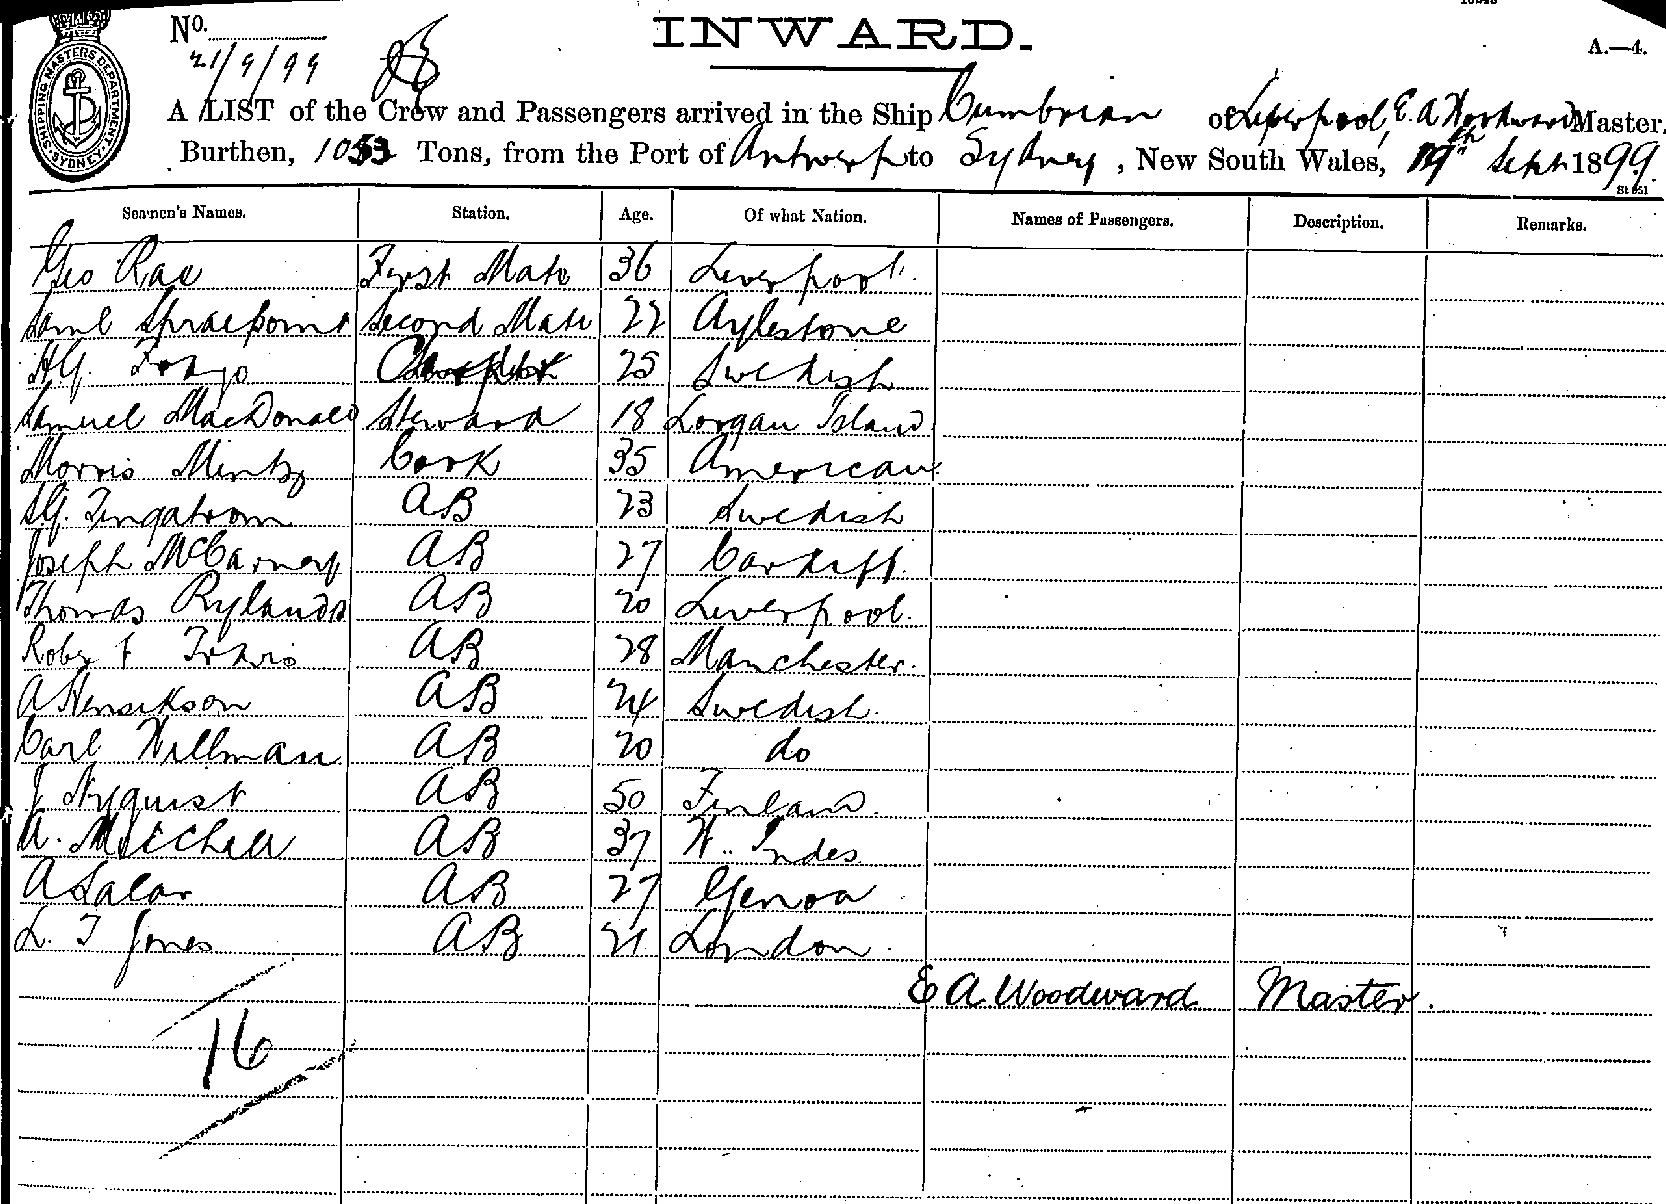 No.
21/9/99
INWARD.
A.—4.
SHIPPING MASTERS DEPARTMENT SYDNEY
A LIST of the Crew and Passengers arrived in the Ship Cumbrian of Liverpool, E. A. Woodward Master,
Burthen, 1053 Tons, from the Port of Antwerp to Sydney, New South Wales, 19th Sept 1899.
Seamen's Names. Station. Age. Of what Nation. Names of Passengers. Description. Remarks.
Geo Rae First Mate 36 Liverpool.
Saml Second Mate 22 Aylestone
25 Swedish
Samuel MacDonald Steward 18 Island
Morris Mintz Cook 35 American
AB 23 Swedish
Joseph McCarney AB 27 Cardiff.
Thomas Rylands AB 20 Liverpool.
AB 28 Manchester.
A Henrikson AB 24 Swedish.
Carl Hillman AB 20 do
J Nyquist AB 50 Finland.
A. Mitchell AB 37 W. Indes
A Salar AB 27 Genoa
L. T Jones AB 21 London.
E A Woodward Master.
16